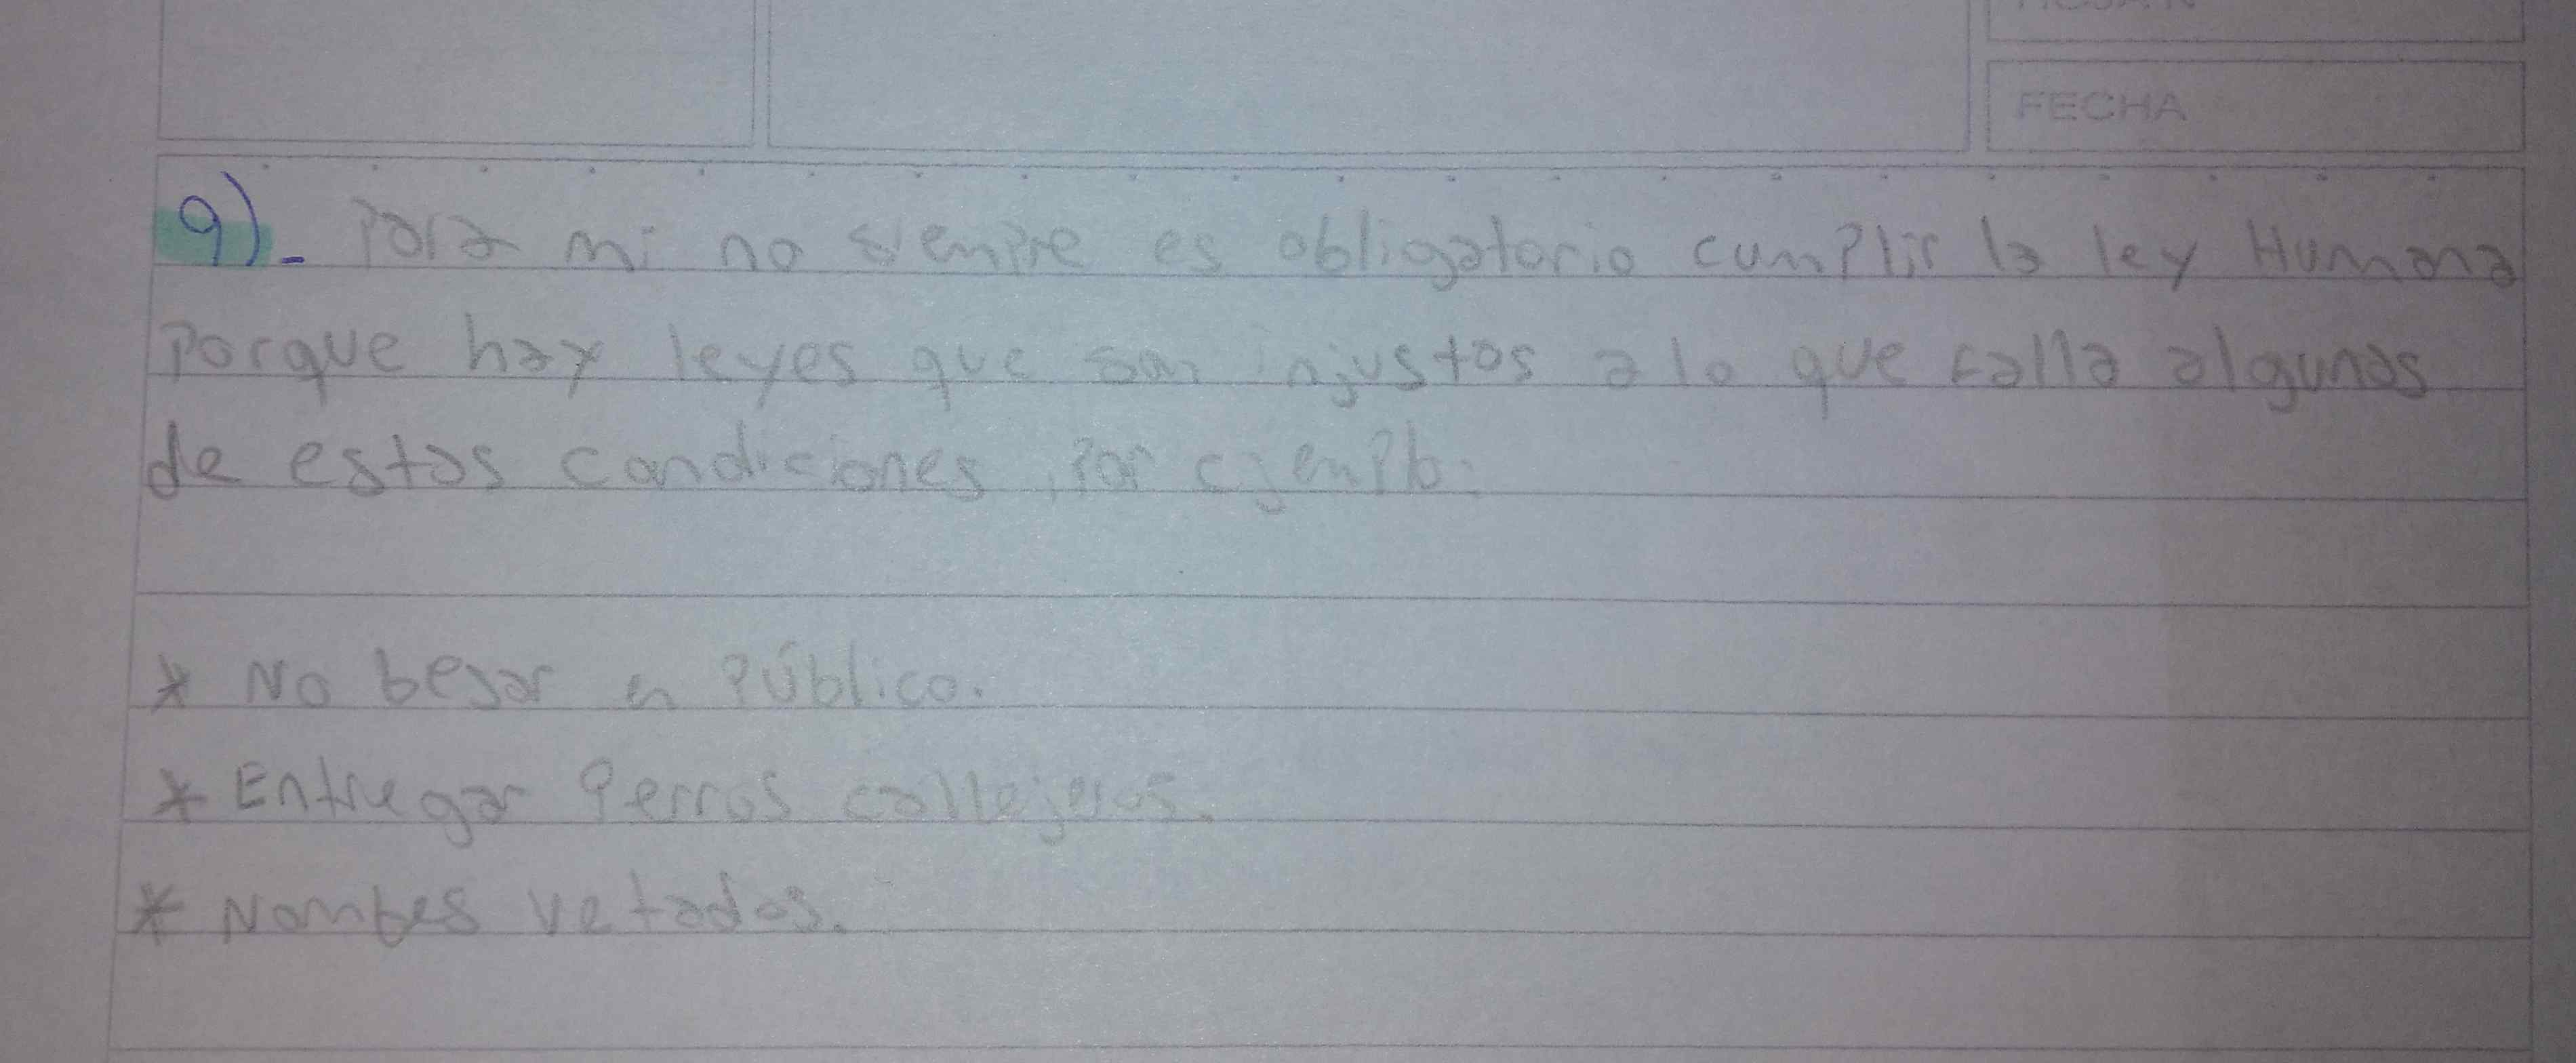 FECHA
9)- Para mi no siempre es obligatorio cumplir la ley Humana
Porque hay leyes que son injustas a lo que falla algunas
de estas condiciones, Por ejemplo:
* No besar en Público.
* Entregar Perros callejeros.
* Nombres vetados.